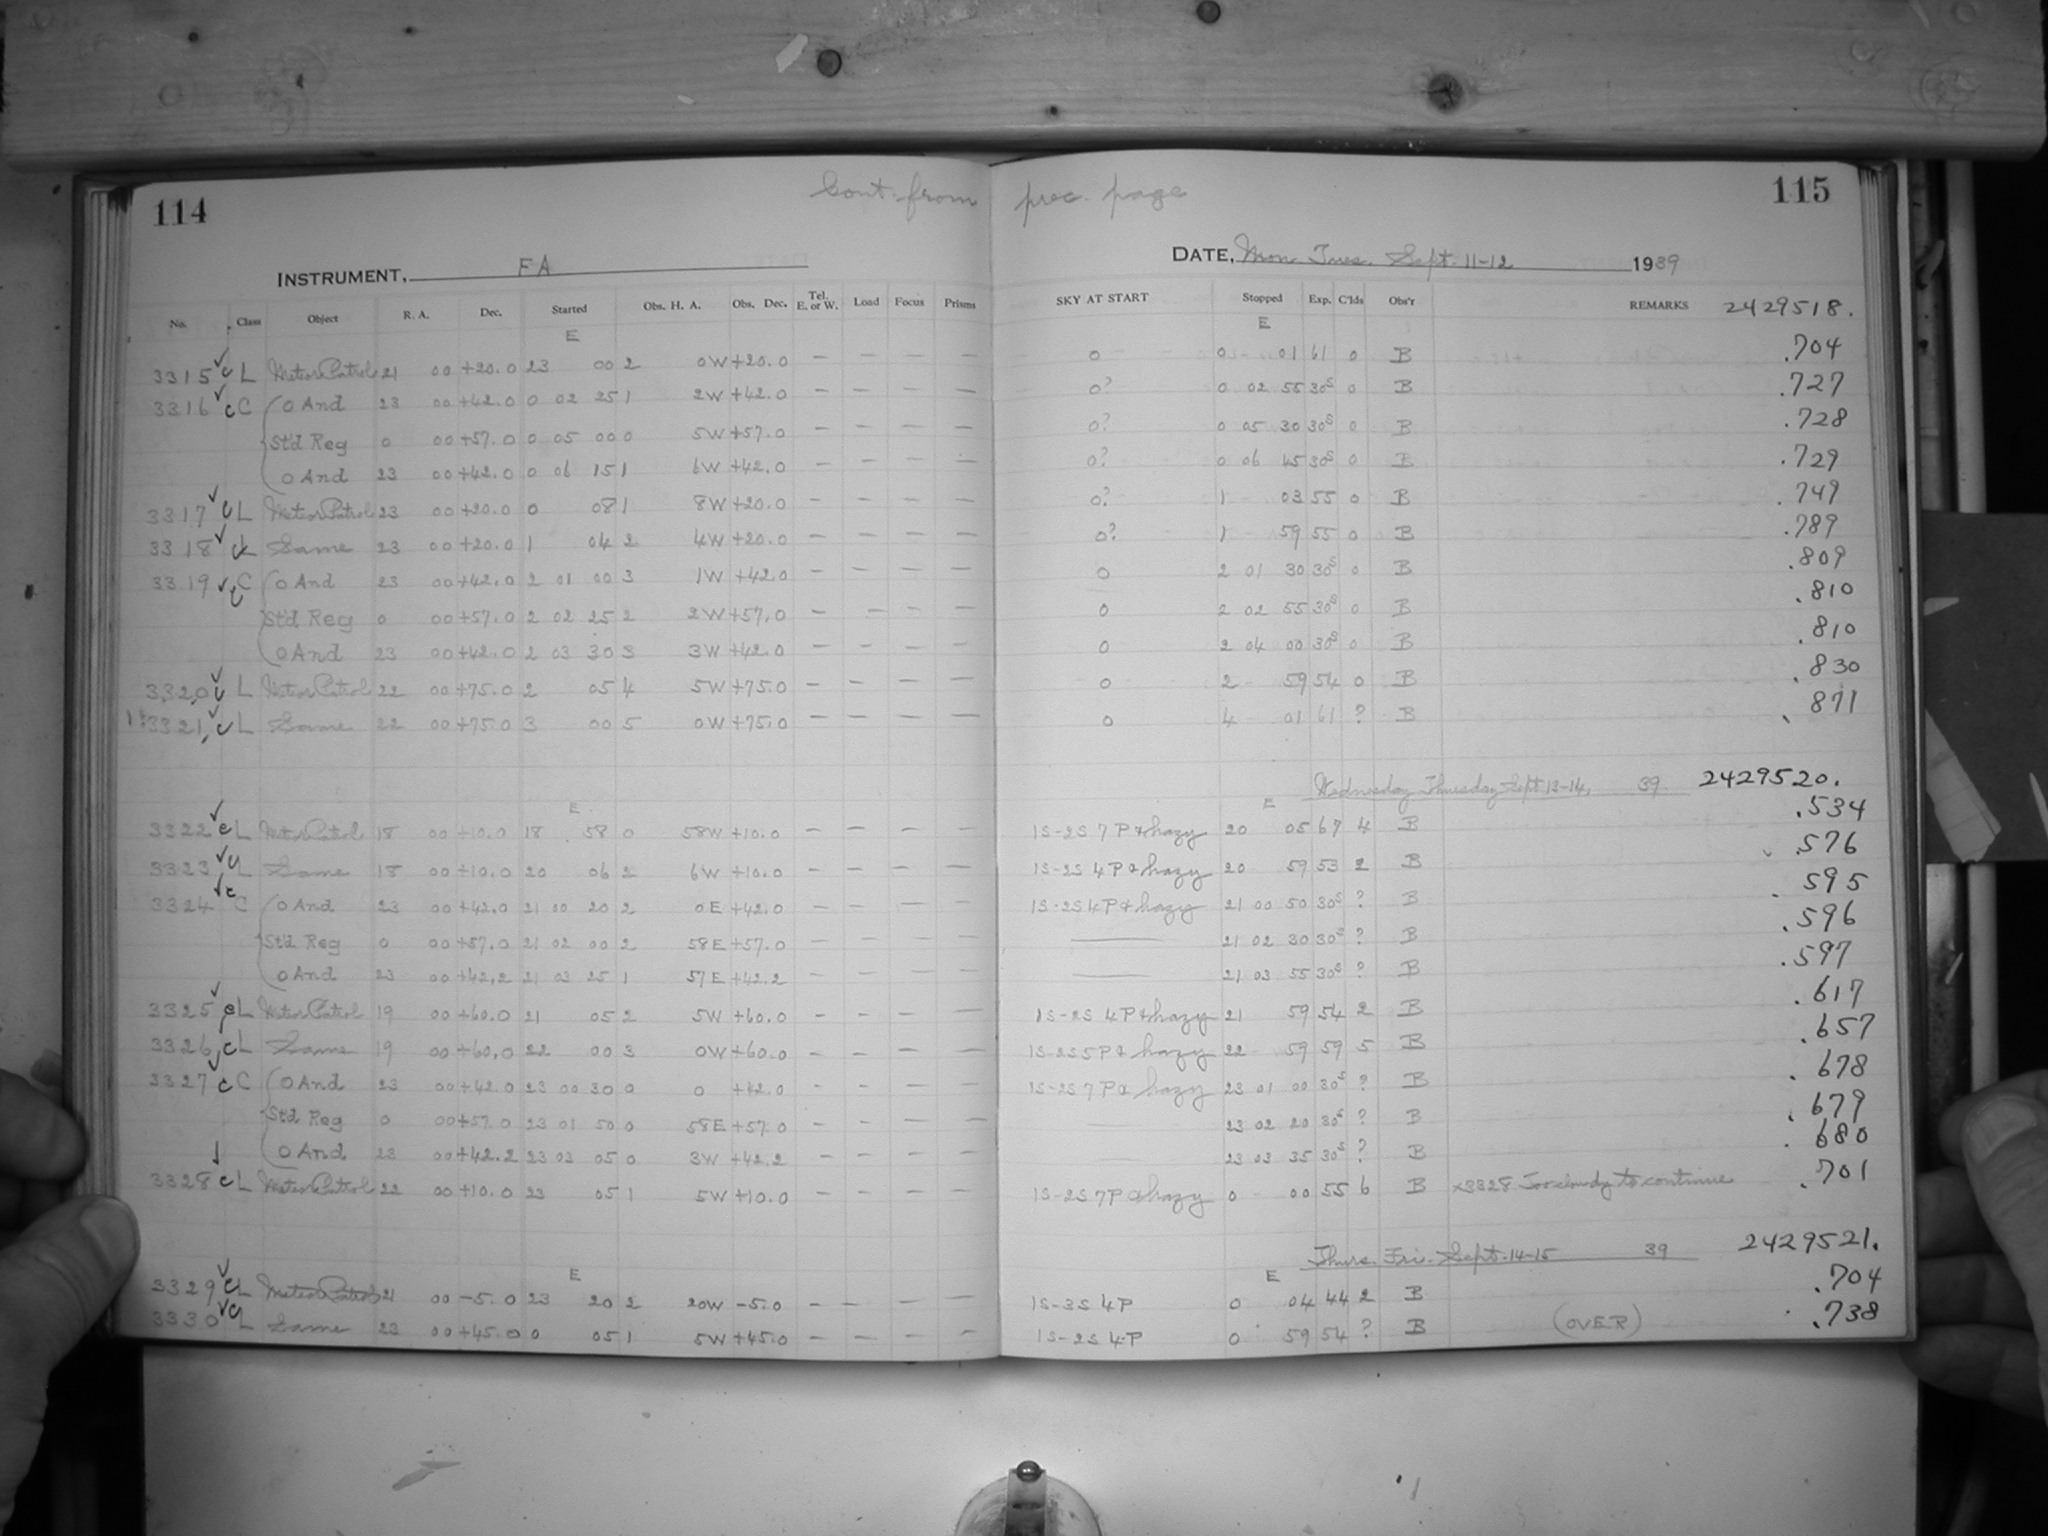 114 Cont. from prec. page 115
INSTRUMENT, FA DATE, Mon Tues. Sept. 11-12 1939
No. Class Object R. A. Dec. Started Obs. H. A. Obs. Dec. Tel. E. or W. Load Focus Prisms SKY AT START Stopped Exp. C'lds Obs'r REMARKS 2429518.
E E
3315 c L Meteor Patrol 21 00 +20.0 23 00 2 0W +20.0 — — — — 0 0 01 61 0 B .704
3316 c C O And 23 00 +42.0 0 02 25 1 2W +42.0 — — — — 0? 0 02 55 30s 0 B .727
Std Reg 0 00 +57.0 0 05 00 0 5W +57.0 — — — — 0? 0 05 30 30s 0 B .728
O And 23 00 +42.0 0 06 15 1 6W +42.0 — — — — 0? 0 06 45 30s 0 B .729
3317 c L Meteor Patrol 23 00 +20.0 0 08 1 8W +20.0 — — — — 0? 1 03 55 0 B .749
3318 c L Same 23 00 +20.0 1 04 2 4W +20.0 — — — — 0? 1 59 55 0 B .789
3319 c C O And 23 00 +42.0 2 01 00 3 1W +42.0 — — — — 0 2 01 30 30s 0 B .809
Std Reg 0 00 +57.0 2 02 25 2 2W +57.0 — — — — 0 2 02 55 30s 0 B .810
O And 23 00 +42.0 2 03 30 3 3W +42.0 — — — — 0 2 04 00 30s 0 B .810
3320 c L Meteor Patrol 22 00 +75.0 2 05 4 5W +75.0 — — — — 0 2 59 54 0 B .830
3321 c L Same 22 00 +75.0 3 00 5 0W +75.0 — — — — 0 4 01 61 ? B .871
Wednesday Thursday Sept 13-14, 39 2429520.
E E
3322 c L Meteor Patrol 18 00 +10.0 18 58 0 58W +10.0 — — — — 1S-2S 7P & hazy 20 05 67 4 B .534
3323 c L Same 18 00 +10.0 20 06 2 6W +10.0 — — — — 1S-2S 4P & hazy 20 59 53 2 B .576
3324 c C O And 23 00 +42.0 21 00 20 2 0E +42.0 — — — — 1S-2S 4P & hazy 21 00 50 30s ? B .595
Std Reg 0 00 +57.0 21 02 00 2 58E +57.0 — — — — —— 21 02 30 30s ? B .596
O And 23 00 +42.2 21 03 25 1 57E +42.2 — — — — —— 21 03 55 30s ? B .597
3325 c L Meteor Patrol 19 00 +60.0 21 05 2 5W +60.0 — — — — 1S-2S 4P & hazy 21 59 54 2 B .617
3326 c L Same 19 00 +60.0 22 00 3 0W +60.0 — — — — 1S-2S 5P & hazy 22 59 59 5 B .657
3327 c C O And 23 00 +42.0 23 00 30 0 0 +42.0 — — — — 1S-2S 7P & hazy 23 01 00 30s ? B .678
Std Reg 0 00 +57.0 23 01 50 0 58E +57.0 — — — — —— 23 02 20 30s ? B .679
O And 23 00 +42.2 23 03 05 0 3W +42.2 — — — — —— 23 03 35 30s ? B .680
3328 c L Meteor Patrol 22 00 +10.0 23 05 1 5W +10.0 — — — — 1S-2S 7P & hazy 0 00 55 6 B x3328 Too cloudy to continue .701
Thurs. Fri. Sept. 14-15 39 2429521.
E E
3329 c L Meteor Patrol 21 00 -5.0 23 20 2 20W -5.0 — — — — 1S-3S 4P 0 04 44 2 B .704
3330 c L Same 23 00 +45.0 0 05 1 5W +45.0 — — — — 1S-2S 4P 0 59 54 ? B (OVER) .738